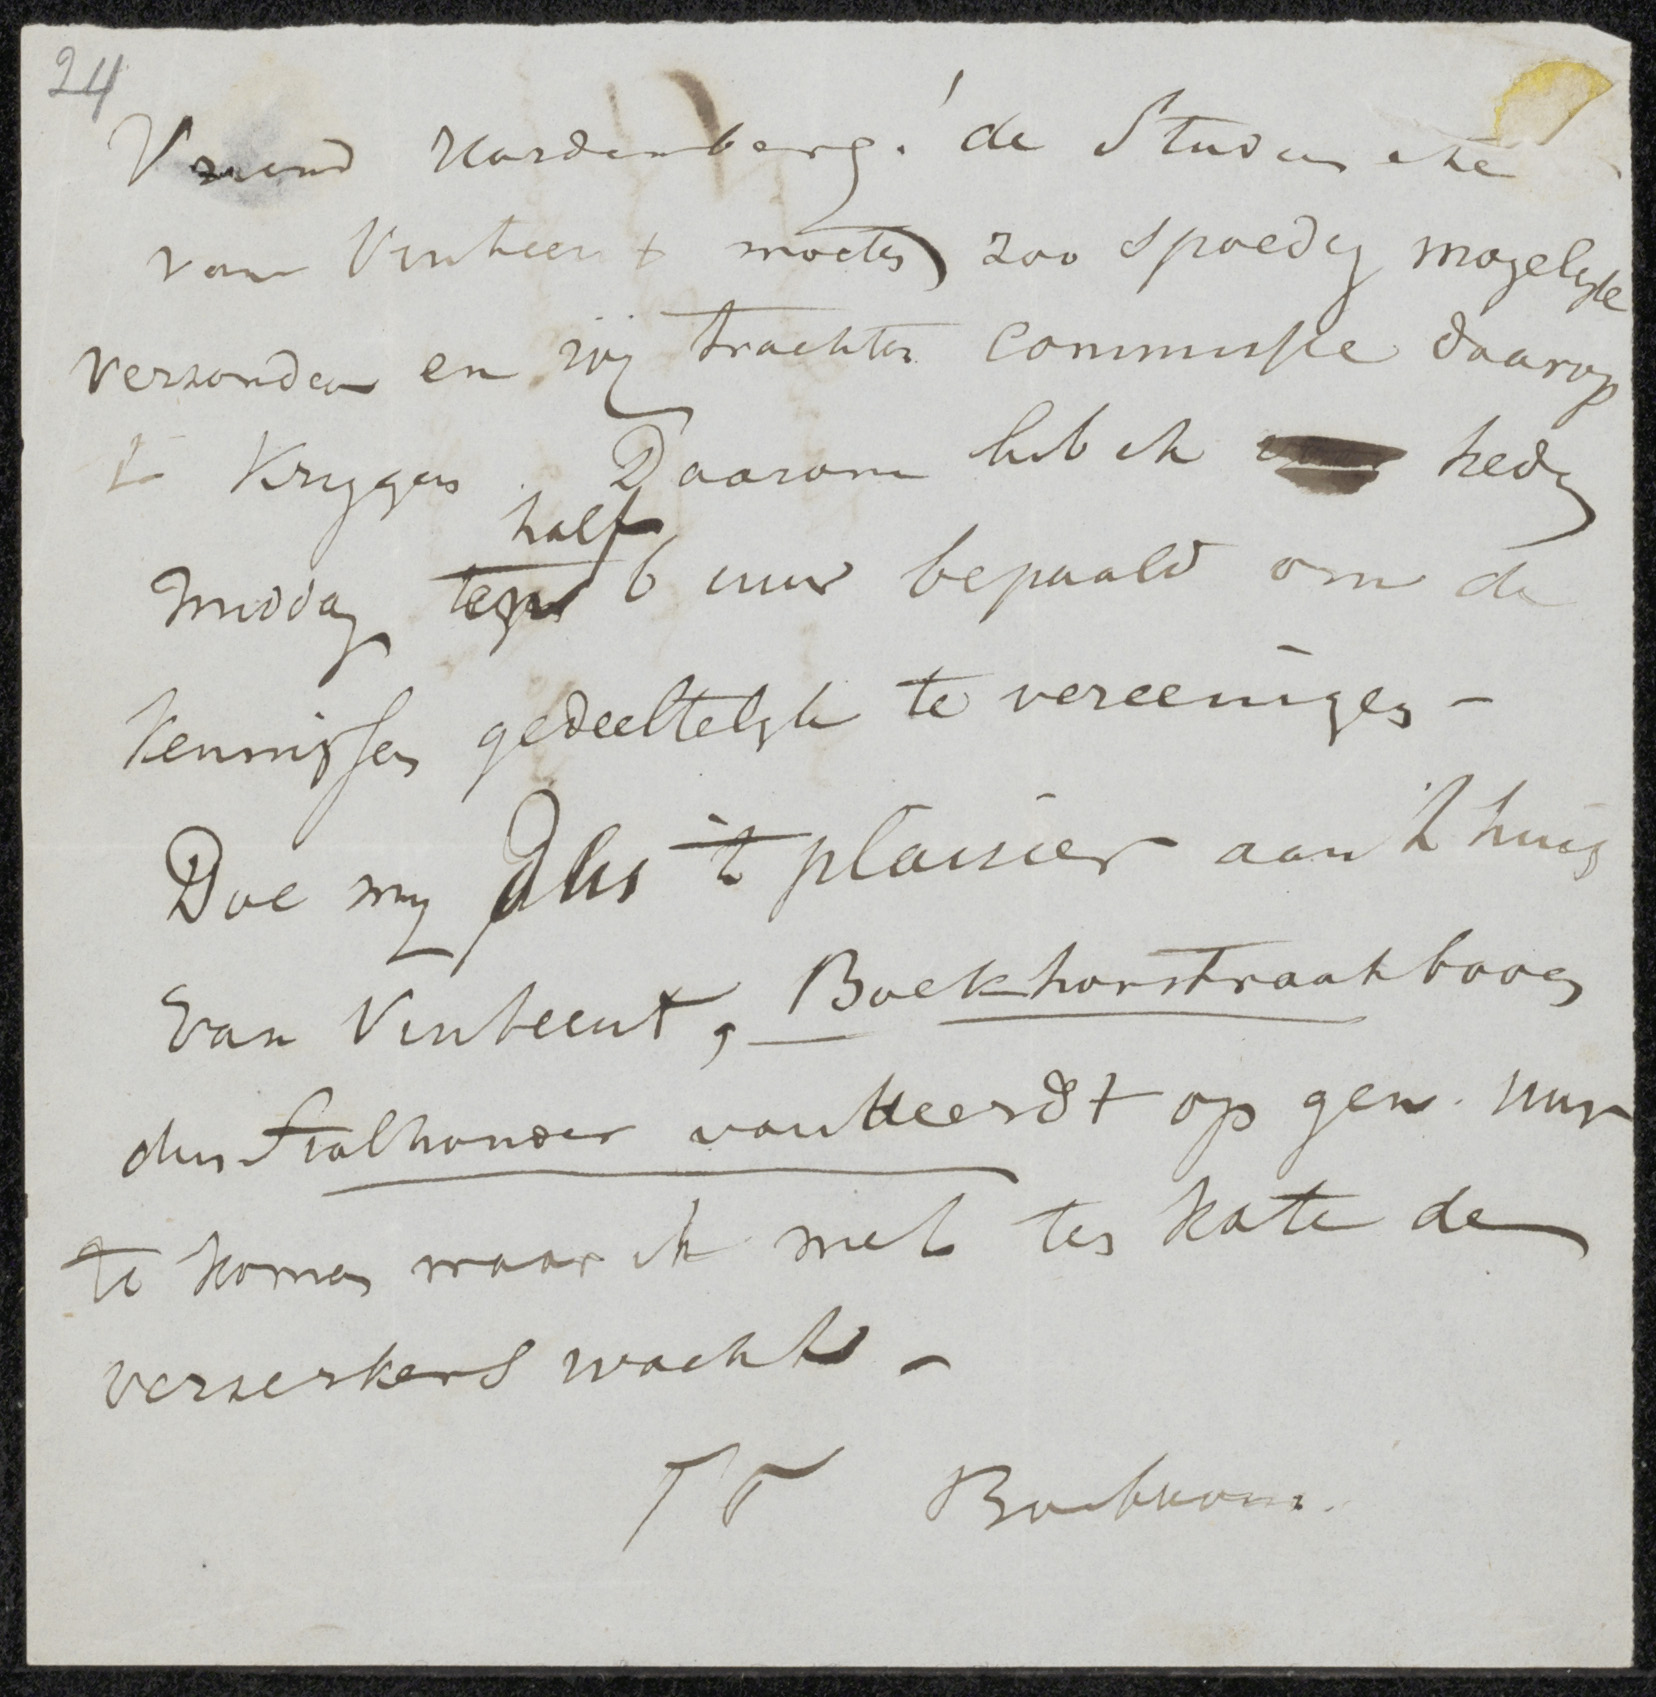 24
Vriend Hardenberg! de Studien etc
van Vintcent moeten zoo spoedig mogelyk
verzonden en wy trachten commissie daarop
te krygen. Daarom heb ik hedn
middag half
tegen 6 uur bepaald om de
kennissen gedeeltelyk te vereenigen -
Doe my dus 't plaisier aan 't huis
van Vintcent, Boekhorstraat boven
den Stalhouder van Heerdt op gen. uur
te komen waar ik met ten Kate de
verzekerd wacht -
TT Bosboom.